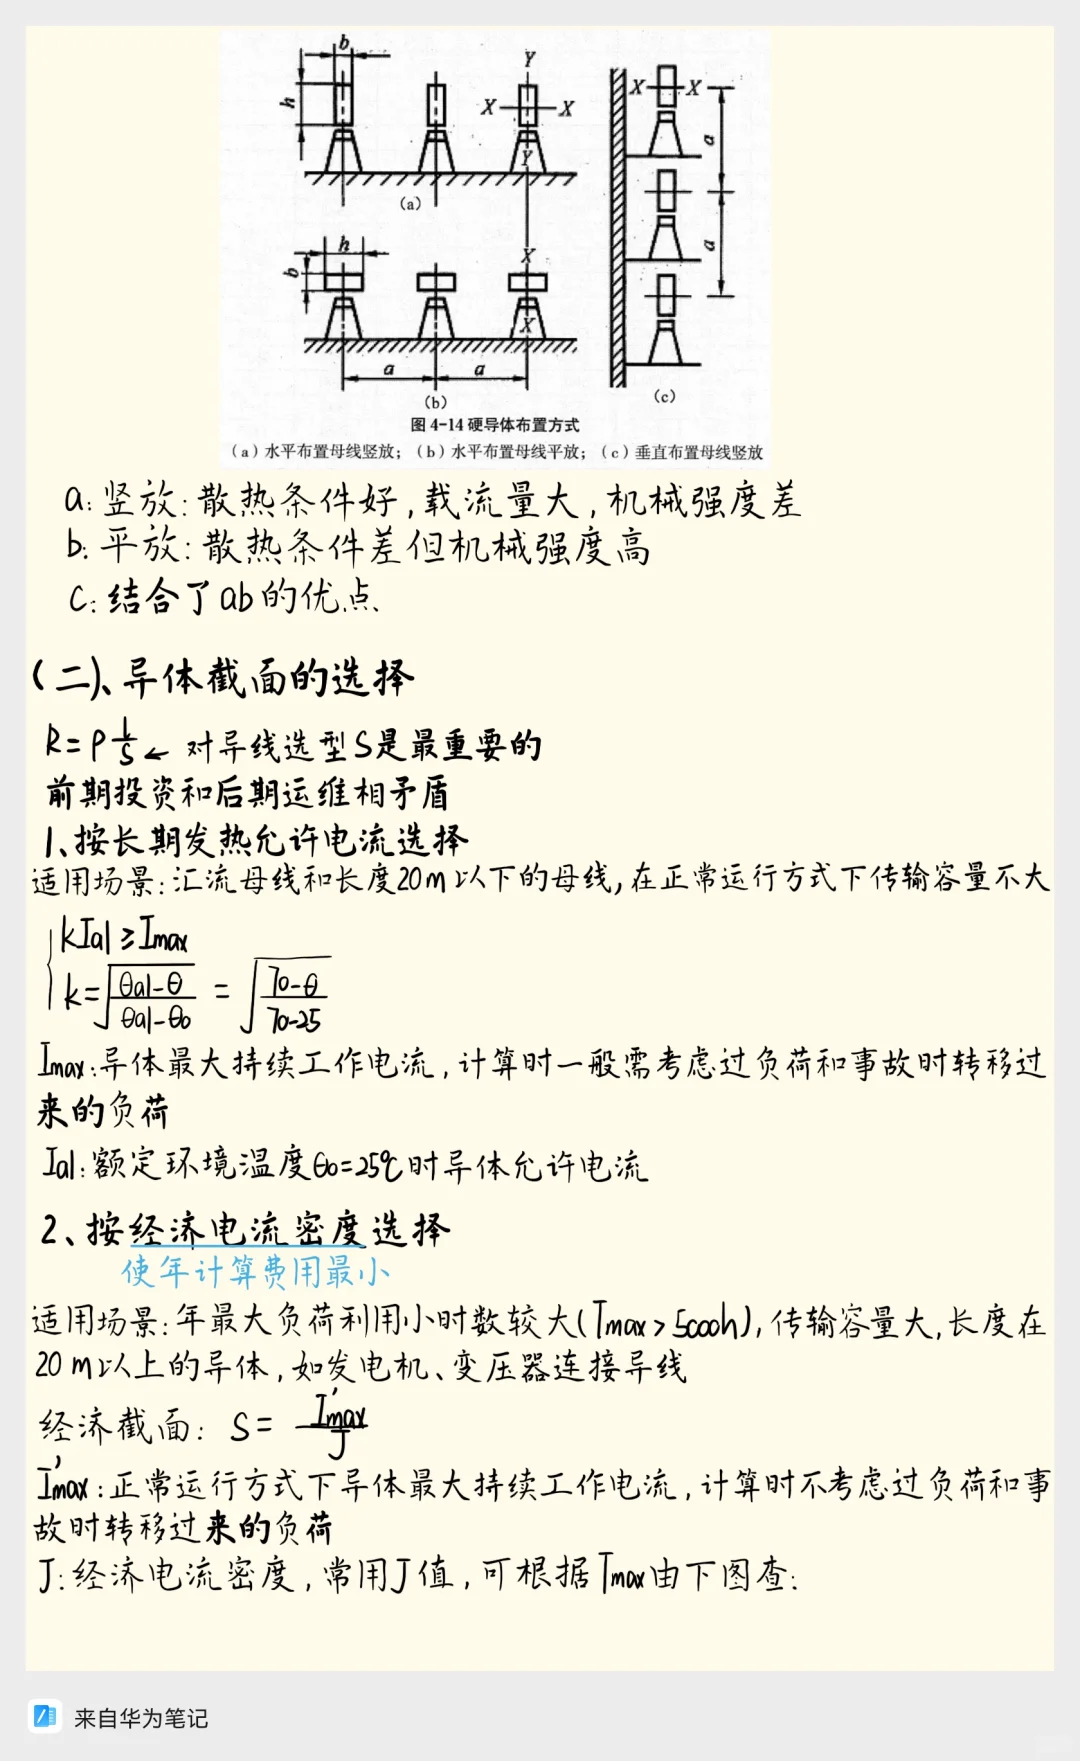 b
h
Y
X X
Y
X X
a
a
(a)
h
b
X
X
a a
(b)
(c)
图 4-14 硬导体布置方式
(a)水平布置母线竖放;(b)水平布置母线平放;(c)垂直布置母线竖放
a:竖放:散热条件好,载流量大,机械强度差
b:平放:散热条件差但机械强度高
C:结合了ab的优点、
(二)、导体截面的选择
R=ρL/S← 对导线选型S是最重要的
前期投资和后期运维相矛盾
1、按长期发热允许电流选择
适用场景:汇流母线和长度20m以下的母线,在正常运行方式下传输容量不大
kIal≥Imax
k=√((θal-θ)/(θal-θ0)) = √((70-θ)/(70-25))
Imax:导体最大持续工作电流,计算时一般需考虑过负荷和事故时转移过
来的负荷
Ial:额定环境温度θ0=25℃时导体允许电流
2、按经济电流密度选择
使年计算费用最小
适用场景:年最大负荷利用小时数较大(Tmax>5000h),传输容量大,长度在
20m以上的导体,如发电机、变压器连接导线
经济截面:S=I'max/J
I'max:正常运行方式下导体最大持续工作电流,计算时不考虑过负荷和事
故时转移过来的负荷
J:经济电流密度,常用J值,可根据Tmax由下图查:
来自华为笔记